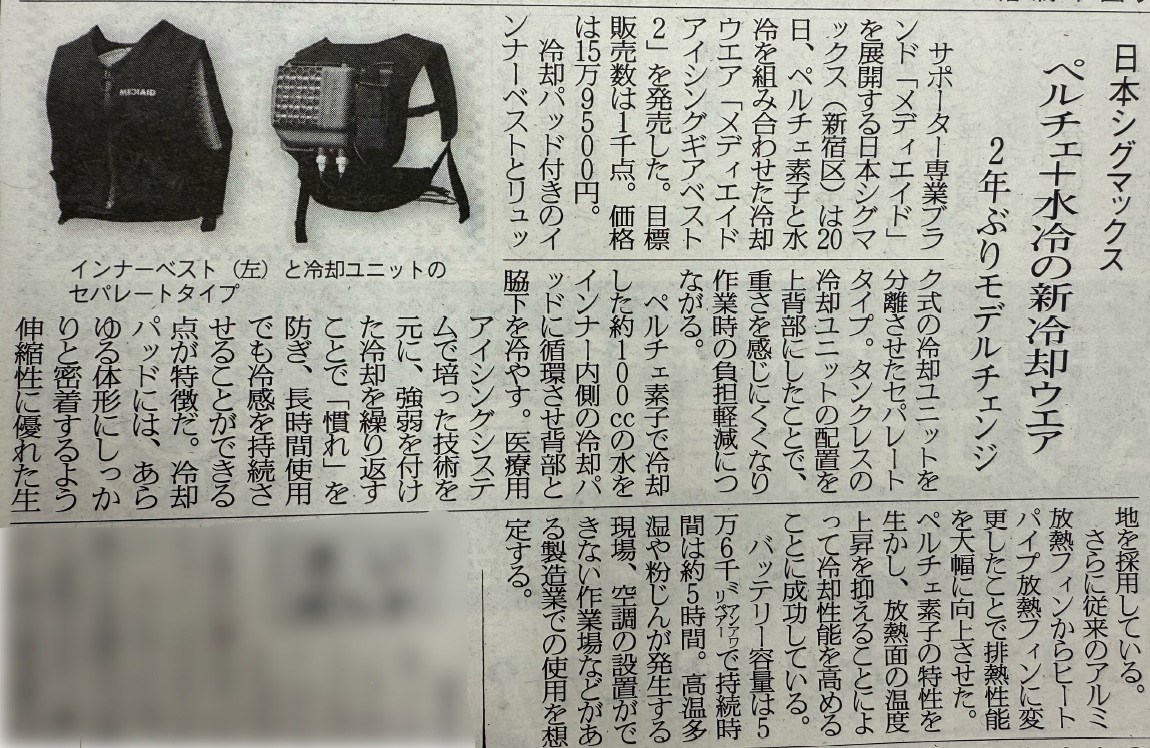 日本シグマックス
ペルチェ＋水冷の新冷却ウエア
2年ぶりモデルチェンジ
サポーター専業ブラ
ンド「メディエイド」
を展開する日本シグマ
ックス（新宿区）は20
日、ペルチェ素子と水
冷を組み合わせた冷却
ウエア「メディエイド
アイシングギアベスト
2」を発売した。目標
販売数は1千点。価格
は15万9500円。
冷却パッド付きのイ
ンナーベストとリュッ
ク式の冷却ユニットを
分離させたセパレート
タイプ。タンクレスの
冷却ユニットの配置を
上背部にしたことで、
重さを感じにくくなり
作業時の負担軽減につ
ながる。
ペルチェ素子で冷却
した約100ccの水を
インナー内側の冷却パ
ッドに循環させ背部と
脇下を冷やす。医療用
アイシングシステ
ムで培った技術を
元に、強弱を付け
た冷却を繰り返す
ことで「慣れ」を
防ぎ、長時間使用
でも冷感を持続さ
せることができる
点が特徴だ。冷却
パッドには、あら
ゆる体形にしっか
りと密着するよう
伸縮性に優れた生
地を採用している。
さらに従来のアルミ
放熱フィンからヒート
パイプ放熱フィンに変
更したことで排熱性能
を大幅に向上させた。
ペルチェ素子の特性を
生かし、放熱面の温度
上昇を抑えることによ
って冷却性能を高める
ことに成功している。
バッテリー容量は5
万6千ミリアンペアアワーで持続時
間は約5時間。高温多
湿や粉じんが発生する
現場、空調の設置がで
きない作業場などがあ
る製造業での使用を想
定する。
MEDIAID
インナーベスト（左）と冷却ユニットの
セパレートタイプ